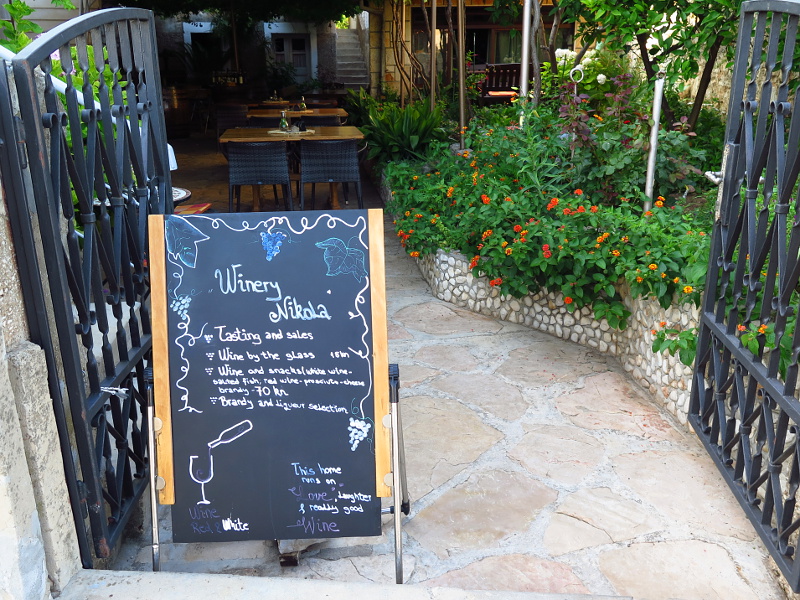 "Winery
Nikola"
Tasting and sales
Wine by the glass 15kn
Wine and snacks(white wine-
salted fish, red wine-prosciuto-cheese
brandy-70 kn
Brandy and liqueur selection
This home
runs on
"Love", laughter
& readdy good
Wine
Wine
Red & White